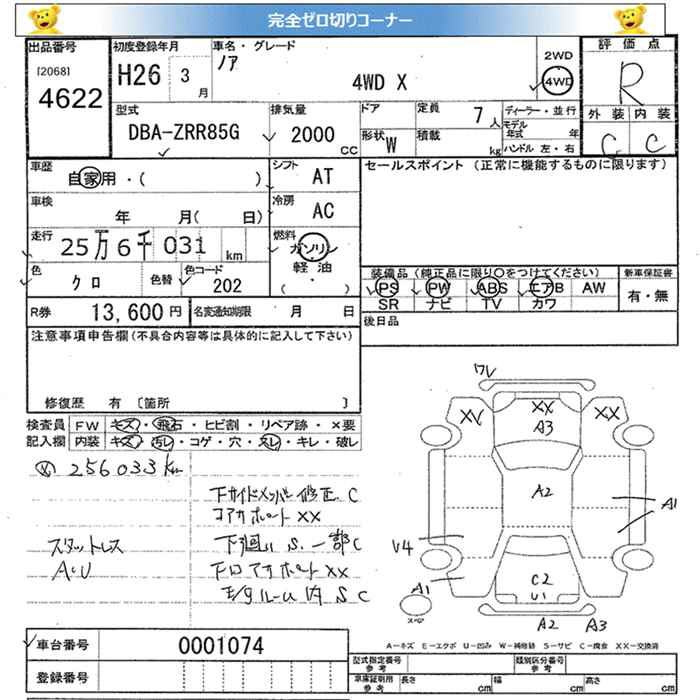 完全ゼロ切りコーナー
出品番号
[2068]
4622
初度登録年月
H26 3月
車名・グレード
ノア
4WD X
2WD
4WD
評価点
R
外装 内装
C C
型式
DBA-ZRR85G
排気量
2000 CC
ドア
形状 W
定員 7人
積載 kg
ディーラー・並行
モデル年式 年
ハンドル 左・右
車歴
自家用・( )
シフト AT
セールスポイント (正常に機能するものに限ります)
車検
年 月( 日)
冷房 AC
走行
25万6千031 km
燃料
ガソリン
軽油
( ・ )
色 クロ
色替
色コード 202
装備品(純正品に限り○をつけてください)
新車保証書
PS PW ABS エアB AW
SR ナビ TV カワ
有・無
R券 13,600円
名変通知期限 月 日
後日品
注意事項申告欄(不具合内容等は具体的に記入して下さい)
修復歴 有 〔箇所 〕
検査員記入欄
FW キズ・飛石・ヒビ割・リペア跡・×要
内装 キズ・汚レ・コゲ・穴・スレ・キレ・破レ
256033km
下サイドメンバー修正 C
コアサポート XX
スタットレス
下廻り S.一部C
下ロアサポート XX
エンジンルーム内 S C
ワレ
XX XX XX
A3
A2
A1
V4
A1
C2
U1
スペア
A2 A3
A-キズ E-エクボ U-凹み W-補修跡 S-サビ C-腐食 XX-交換済
車台番号 0001074
登録番号
型式指定番号 参考
類別区分番号 参考
車庫証明用 参考
長さ cm
幅 cm
高さ cm